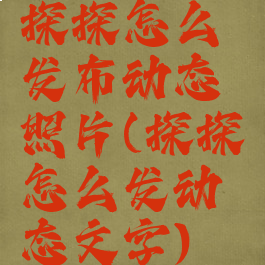 探探怎么
发布动态
照片(探探
怎么发动
态文字)